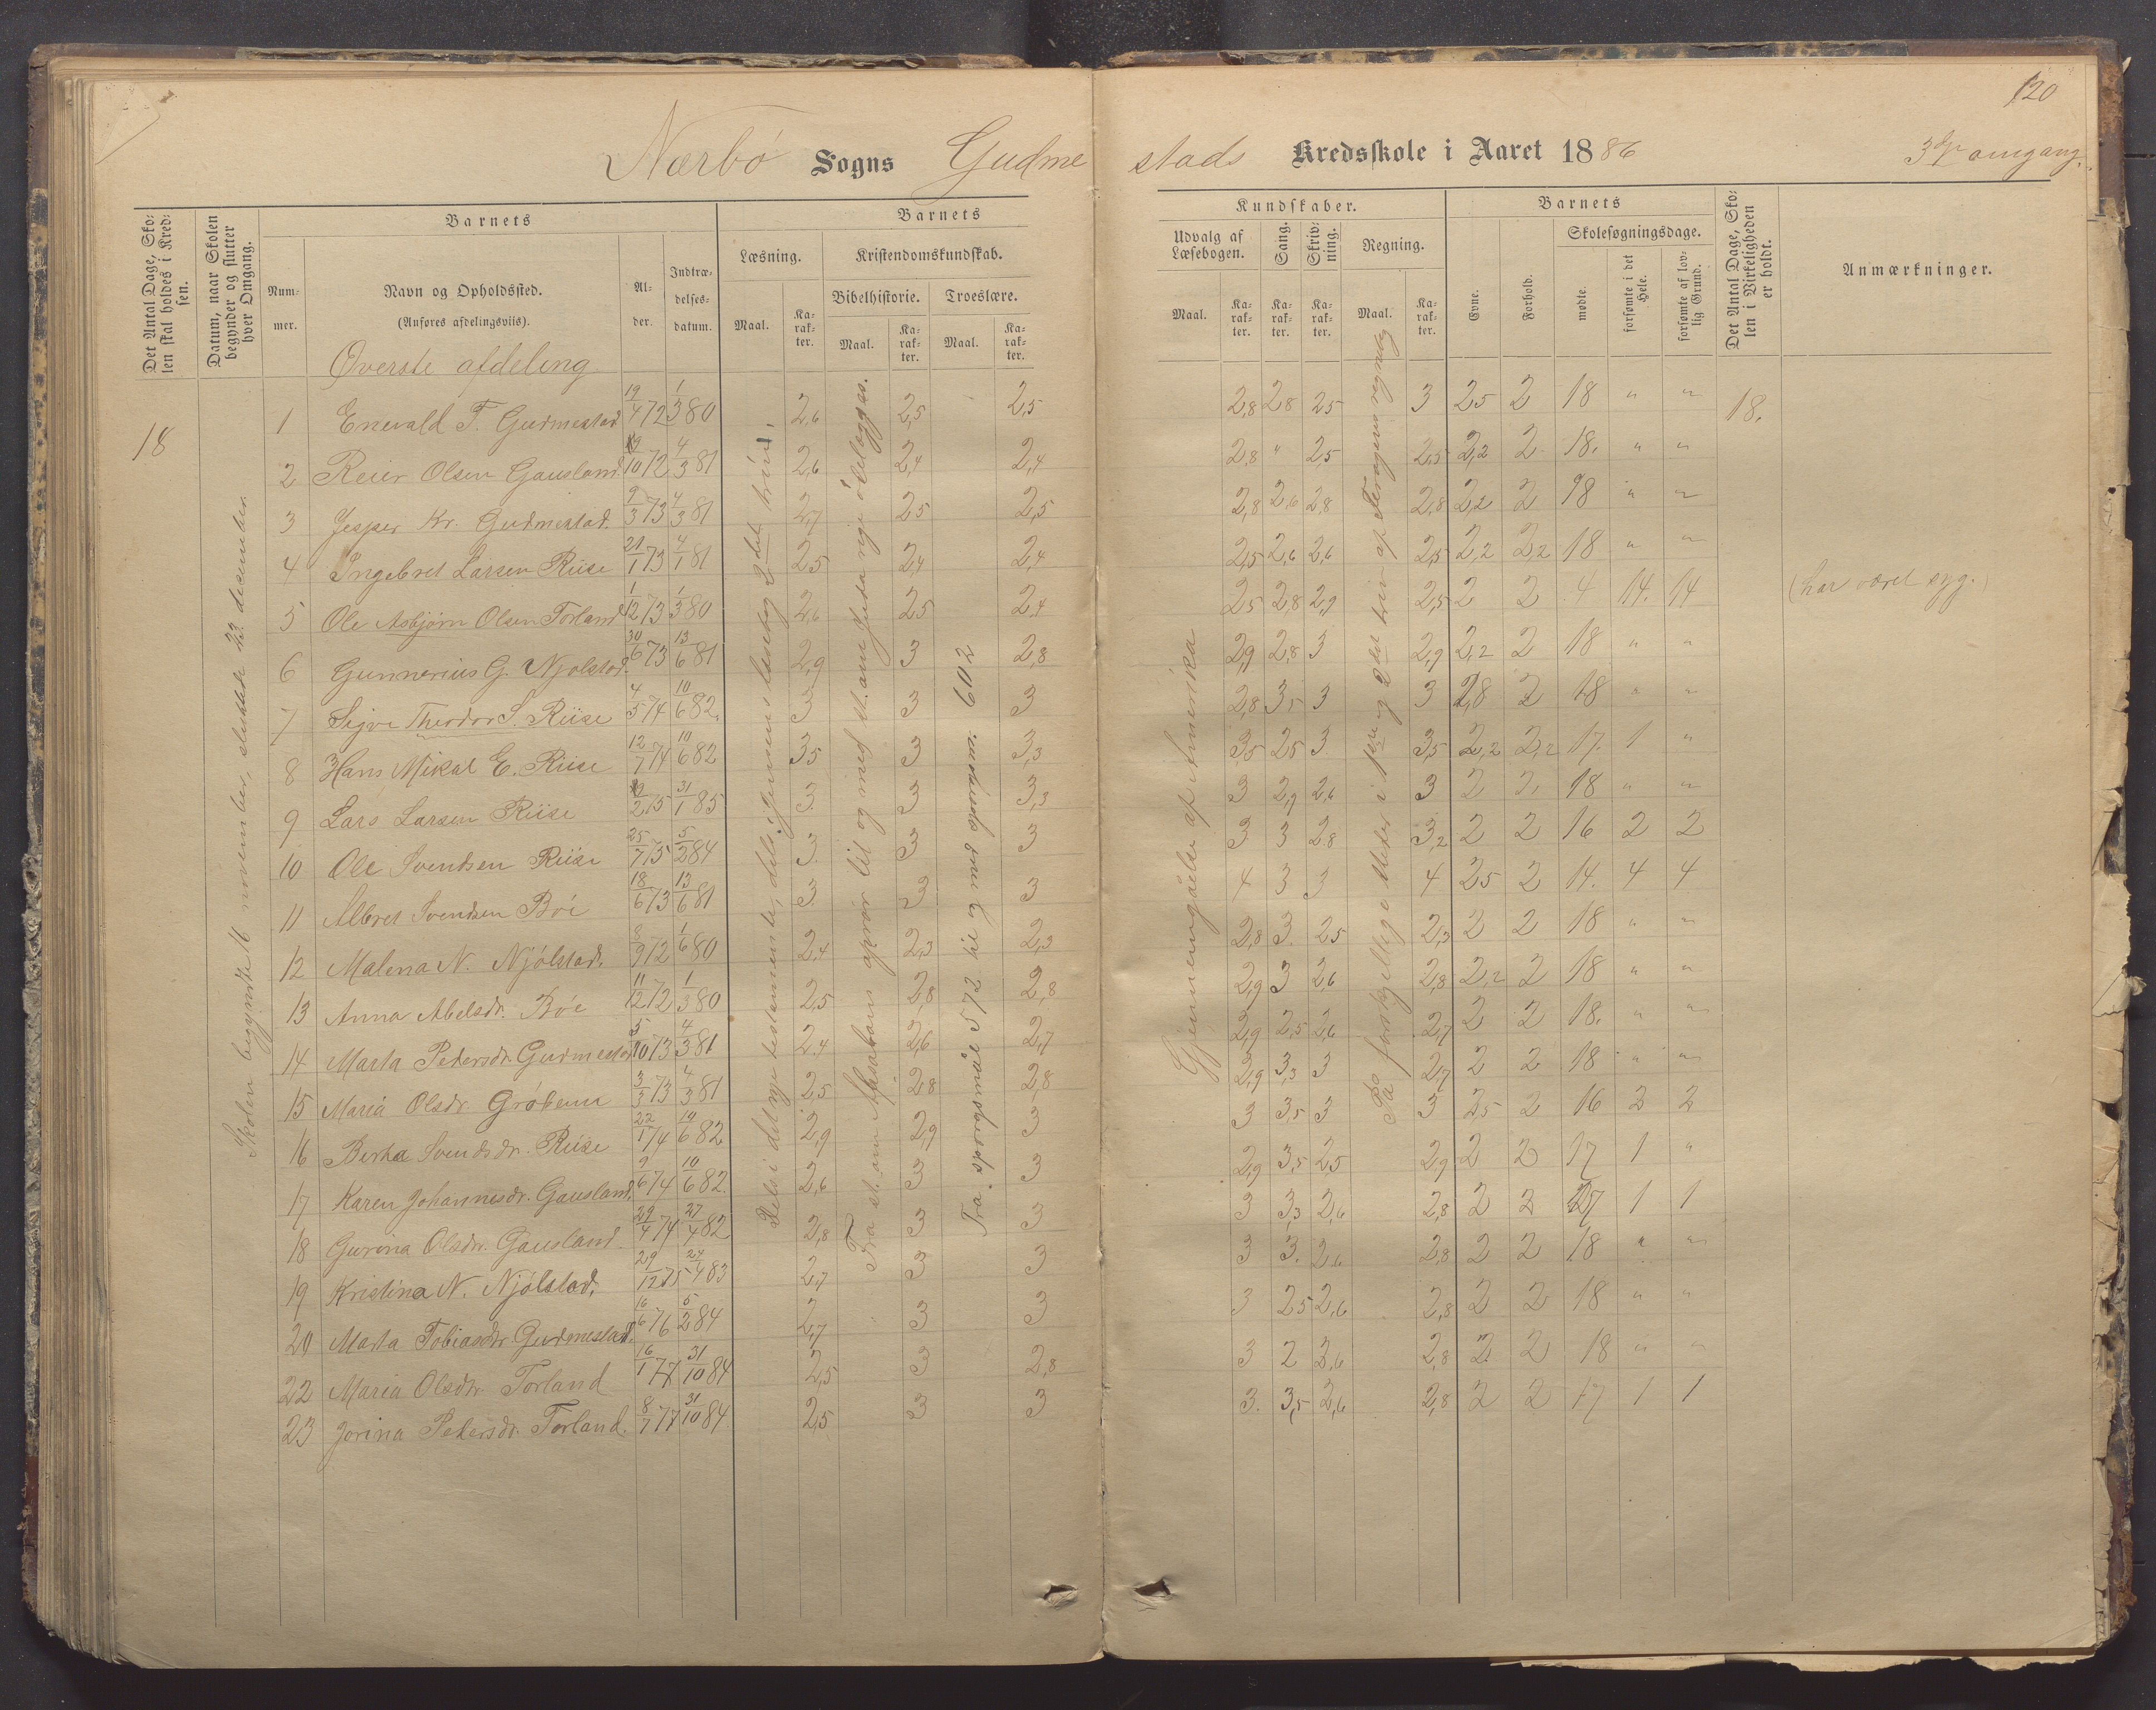 120
Nærbö Sogns Gudmestads Kredsskole i Aaret 1886 3die omgang.
Det Antal Dage, Skolen skal holdes i Kredsen.
Datum, naar Skolen begynder og slutter hver Omgang.
Barnets
Nummer.
Navn og Opholdssted.
(Anføres afdelingsviis).
Alder.
Indtrædelsesdatum.
Barnets
Læsning.
Maal.
Karakter.
Kristendomskundskab.
Bibelhistorie.
Maal.
Karakter.
Troeslære.
Maal.
Karakter.
Kundskaber.
Udvalg af Læsebogen.
Maal.
Karakter.
Sang.
Karakter.
Skrivning.
Karakter.
Regning.
Maal.
Karakter.
Barnets
Evne.
Forhold.
Skolesøgningsdage.
mødte.
forsømte i det Hele.
forsømte af lovlig Grund.
Det Antal Dage, Skolen i Virkeligheden er holdt.
Anmærkninger.
Øverste afdeling
18
Skolen begyndte 16 november, sluttede 22. december.
1 Enevald T. Gudmestad 19/4 72 1/3 80 2,6 2,5 2,5 2,8 2,8 2,5 3 2,5 2 18 " " 18.
2 Reier Olsen Gausland 19/10 72 4/3 81 2,6 2,4 2,4 2,8 " 2,5 2,5 2,2 2 18. " "
3 Jesper Kr. Gudmestad. 9/3 73 4/3 81 2,7 2,5 2,5 2,8 2,6 2,8 2,8 2,2 2 18 " "
4 Ingebret Larsen Riise 21/1 73 4/1 81 2,5 2,4 2,4 2,5 2,6 2,6 2,5 2,2 2,2 18 " "
5 Ole Asbjørn Olsen Torland 1/12 73 1/3 80 2,6 2,5 2,4 2,5 2,8 2,9 2,5 2 2 4 14. 14 (har været syg.)
6 Gunnerius G. Njolstad. 30/6 73 13/6 81 2,9 3 2,8 2,9 2,8 3 2,9 2,2 2 18 " "
7 Sijve Theodor S. Riise 4/5 74 10/6 82. 3 3 3 2,8 3,5 3 3 2,8 2 18 " "
8 Hans Mikal E. Riise 12/7 74 10/6 82 3,5 3 3,3 3,5 2,5 3 3,5 2,2 2,2 17. 1 "
9 Lars Larsen Riise 10/2 75 31/1 85 3 3 3,3 3 2,9 2,6 3 2 2 18 " "
10 Ole Svendsen Riise 25/7 75 5/2 84 3. 3 3 3 3 2,8 3,2 2 2 16 2 2
11 Albret Svendsen Böe 18/6 73 13/6 81 3. 3 3 4 3 3 4 2,5 2 14. 4 4
12 Malena N. Njölstad. 8/9 72 1/6 80 2,4 2,3 2,3 2,8 3. 2,5 2,3 2 2 18 " "
13 Anna Abelsdr. Böe 11/12 72 1/3 80 2,5 2,8 2,8 2,9 3 2,6 2,8 2,2 2 18 " "
14 Marta Pedersdr. Gudmestad 5/10 73 4/3 81 2,4 2,6 2,7 2,9 2,5 2,6 2,7 2 2 18. " "
15 Maria Olsdr. Gröteim 3/3 73 4/3 81 2,5 2,8 2,8 2,9 3,3 3 2,7 2 2 18 " "
16 Berta Svendsdr. Riise 22/1 74 10/6 82 2,9 2,9 3 3 3,5 3 3 2,5 2 16 2 2
17 Karen Johannesdr. Gausland. 9/6 74 10/6 82. 2,6 3 3 2,9 3,5 2,5 2,9 2 2 17 1 "
18 Gurina Olsdr. Gausland 29/4 74 27/4 82 2,8 3 3 3 3,3 2,6 2,8 2 2 17 1 1
19 Kristina N. Njölstad. 29/12 75 27/4 83 2,7 3 3 3 3. 2,6 2,8 2 2 18 " "
20 Marta Tobiasdr. Gudmestad. 16/6 76 5/2 84 2,7 3 3 3 2,5 2,6 2,8 2 2 18 " "
22 Maria Olsdr. Torland 16/1 77 31/10 84 2,5 3 2,8 3 2 2,6 2,8 2 2 18 " "
23 Jorina Pedersdr. Torland. 8/7 77 31/10 84 2,5 3 3 3. 3,5 2,6 2,8 2 2 17 1 1
Dels i det nye testamente, dels i Jensens læsebog 2det trin.
Fra st. om Absaloms oprør til og med st. om Juda rige ödelægges.
Fra spørgsmål 572 til og med spørgsm: 602
Gjennemgåelse af Amerika
På forskjellige steder i 1ste og 2det trin af regning